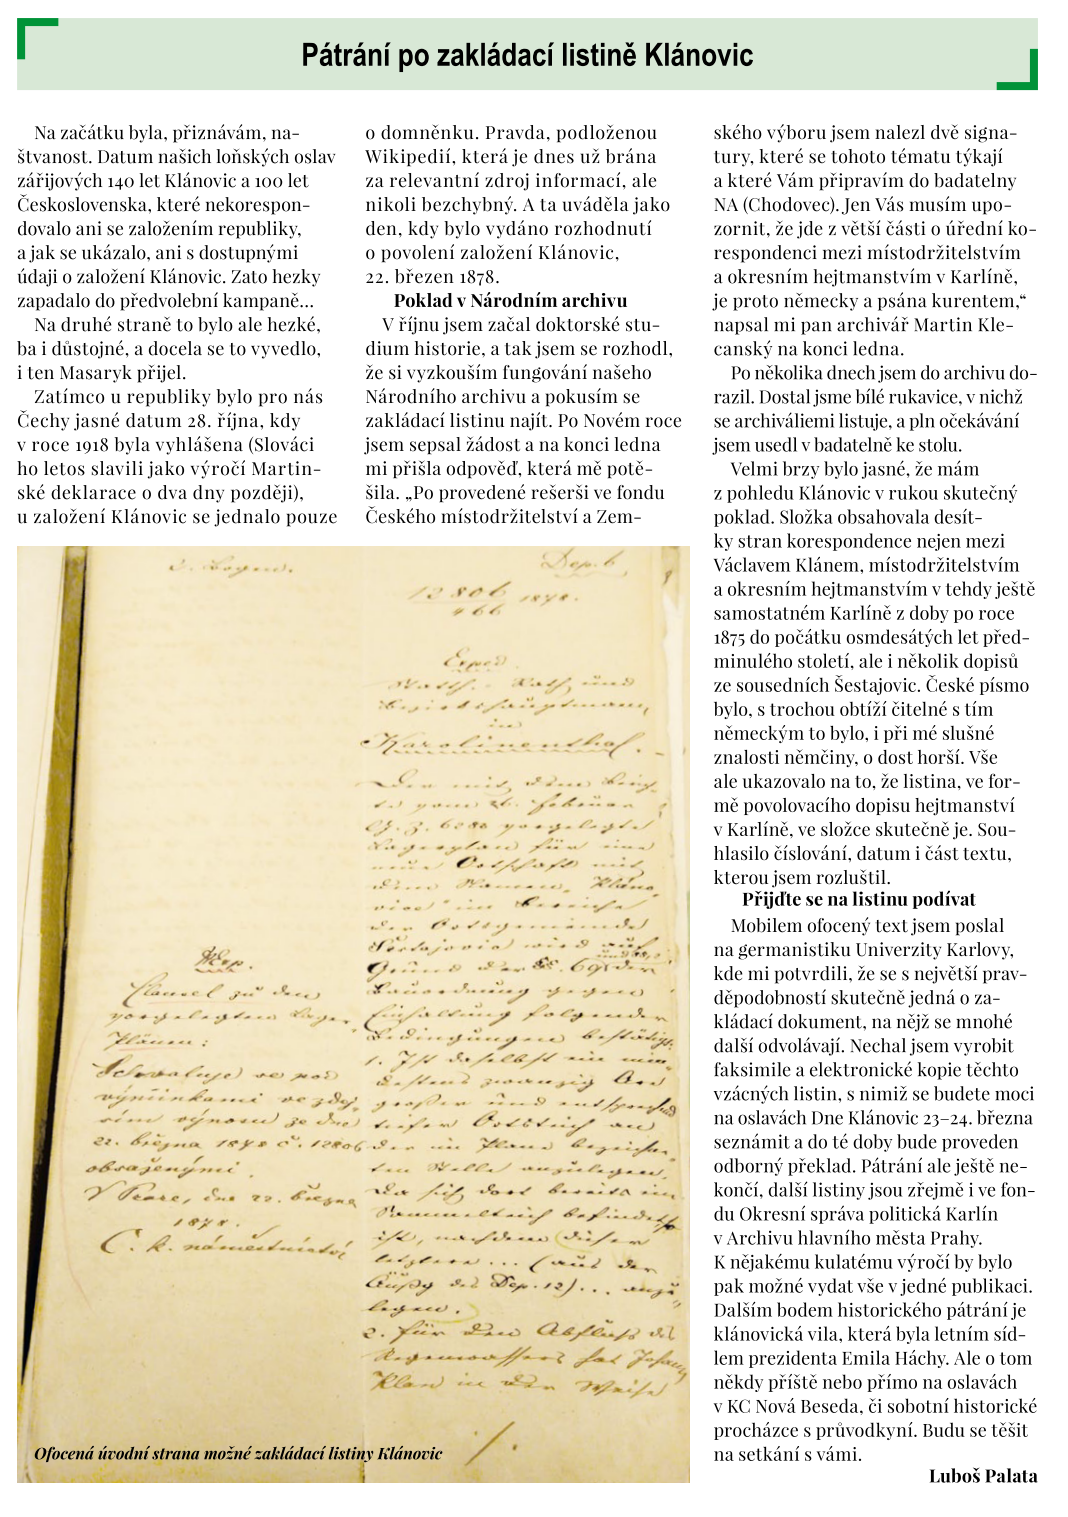 Pátrání po zakládací listině Klánovic
Na začátku byla, přiznávám, na-
štvanost. Datum našich loňských oslav
zářijových 140 let Klánovic a 100 let
Československa, které nekorespon-
dovalo ani se založením republiky,
a jak se ukázalo, ani s dostupnými
údaji o založení Klánovic. Zato hezky
zapadalo do předvolební kampaně...
Na druhé straně to bylo ale hezké,
ba i důstojné, a docela se to vyvedlo,
i ten Masaryk přijel.
Zatímco u republiky bylo pro nás
Čechy jasné datum 28. října, kdy
v roce 1918 byla vyhlášena (Slováci
ho letos slavili jako výročí Martin-
ské deklarace o dva dny později),
u založení Klánovic se jednalo pouze
o domněnku. Pravda, podloženou
Wikipedií, která je dnes už brána
za relevantní zdroj informací, ale
nikoli bezchybný. A ta uváděla jako
den, kdy bylo vydáno rozhodnutí
o povolení založení Klánovic,
22. březen 1878.
Poklad v Národním archivu
V říjnu jsem začal doktorské stu-
dium historie, a tak jsem se rozhodl,
že si vyzkouším fungování našeho
Národního archivu a pokusím se
zakládací listinu najít. Po Novém roce
jsem sepsal žádost a na konci ledna
mi přišla odpověď, která mě potě-
šila. „Po provedené rešerši ve fondu
Českého místodržitelství a Zem-
ského výboru jsem nalezl dvě signa-
tury, které se tohoto tématu týkají
a které Vám připravím do badatelny
NA (Chodovec). Jen Vás musím upo-
zornit, že jde z větší části o úřední ko-
respondenci mezi místodržitelstvím
a okresním hejtmanstvím v Karlíně,
je proto německy a psána kurentem,“
napsal mi pan archivář Martin Kle-
canský na konci ledna.
Po několika dnech jsem do archivu do-
razil. Dostal jsme bílé rukavice, v nichž
se archiváliemi listuje, a pln očekávání
jsem usedl v badatelně ke stolu.
Velmi brzy bylo jasné, že mám
z pohledu Klánovic v rukou skutečný
poklad. Složka obsahovala desít-
ky stran korespondence nejen mezi
Václavem Klánem, místodržitelstvím
a okresním hejtmanstvím v tehdy ještě
samostatném Karlíně z doby po roce
1875 do počátku osmdesátých let před-
minulého století, ale i několik dopisů
ze sousedních Šestajovic. České písmo
bylo, s trochou obtíží čitelné s tím
německým to bylo, i při mé slušné
znalosti němčiny, o dost horší. Vše
ale ukazovalo na to, že listina, ve for-
mě povolovacího dopisu hejtmanství
v Karlíně, ve složce skutečně je. Sou-
hlasilo číslování, datum i část textu,
kterou jsem rozluštil.
Přijďte se na listinu podívat
Mobilem ofocený text jsem poslal
na germanistiku Univerzity Karlovy,
kde mi potvrdili, že se s největší prav-
děpodobností skutečně jedná o za-
kládací dokument, na nějž se mnohé
další odvolávají. Nechal jsem vyrobit
faksimile a elektronické kopie těchto
vzácných listin, s nimiž se budete moci
na oslavách Dne Klánovic 23–24. března
seznámit a do té doby bude proveden
odborný překlad. Pátrání ale ještě ne-
končí, další listiny jsou zřejmě i ve fon-
du Okresní správa politická Karlín
v Archivu hlavního města Prahy.
K nějakému kulatému výročí by bylo
pak možné vydat vše v jedné publikaci.
Dalším bodem historického pátrání je
klánovická vila, která byla letním síd-
lem prezidenta Emila Háchy. Ale o tom
někdy příště nebo přímo na oslavách
v KC Nová Beseda, či sobotní historické
procházce s průvodkyní. Budu se těšit
na setkání s vámi.
Luboš Palata
Dep. 6
12806 1878.
466
in
Karolinenthal.
Clausel zu den
vorgelegten Lager-
Plänen:
Schvaluje se pod
výmínkami ve zdej-
ším výnosu ze dne
22. března 1878 č. 12806
obsaženými.
V Praze, dne 22. března
1878.
C. k. náměstnictví
Der mit dem Berich-
te vom 26. Februar
Z. 6280 vorgelegte
Lagerplan für eine
neue Ortschaft mit
dem Namen „Kláno-
vice“ im Bereiche
der Ortsgemeinde
Šestajovic wird auf
Grund der §§. 69 der
Bauordnung gegen
Einhaltung folgender
Bedingungen bestätigt:
1. Ist daselbst ein min-
destens zwanzig Ar
großer und entsprechend
tiefer Ortsteich an
der im Plane bezeichne-
ten Stelle anzulegen,
da sich dort bereits ein
Sammelteich befindet
ist, nachdem dieser
letztere ... (aus der
Dep. 12) ...
legen.
2. für den Abfluß des
Regenwassers hat Johann
Klan in der Weise
Ofocená úvodní strana možné zakládací listiny Klánovic